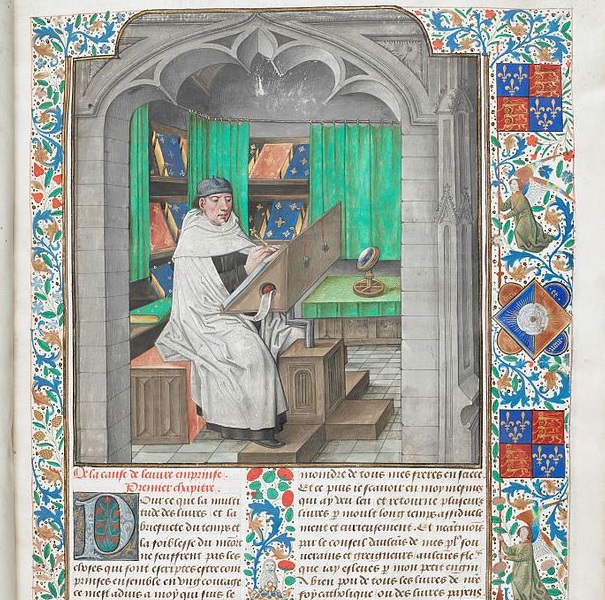 De la cause de leuure emprinse.
Premier chapitre.
Pour ce que la multi
tude des liures et la
briefuete du temps et
la foiblesse du
ne seuffrent pas les
choses qui sont escriptes estre com
prinses ensemble en vng courage
ce mest aduis a moy qui suis le
moindre de tous mes freres
Et ce puis ie scauoir en moy mesmes
qui ay veu leu et retourne pluseurs
liures p moult long temps assidue
ment et curieusement. Et
par le conseil daulcuns de mes sou
uerains et greigneurs aulcunes
que iay esleues p mon petit engin
a bien pou de tous les liures de nre
foy catholique ou des liures payens